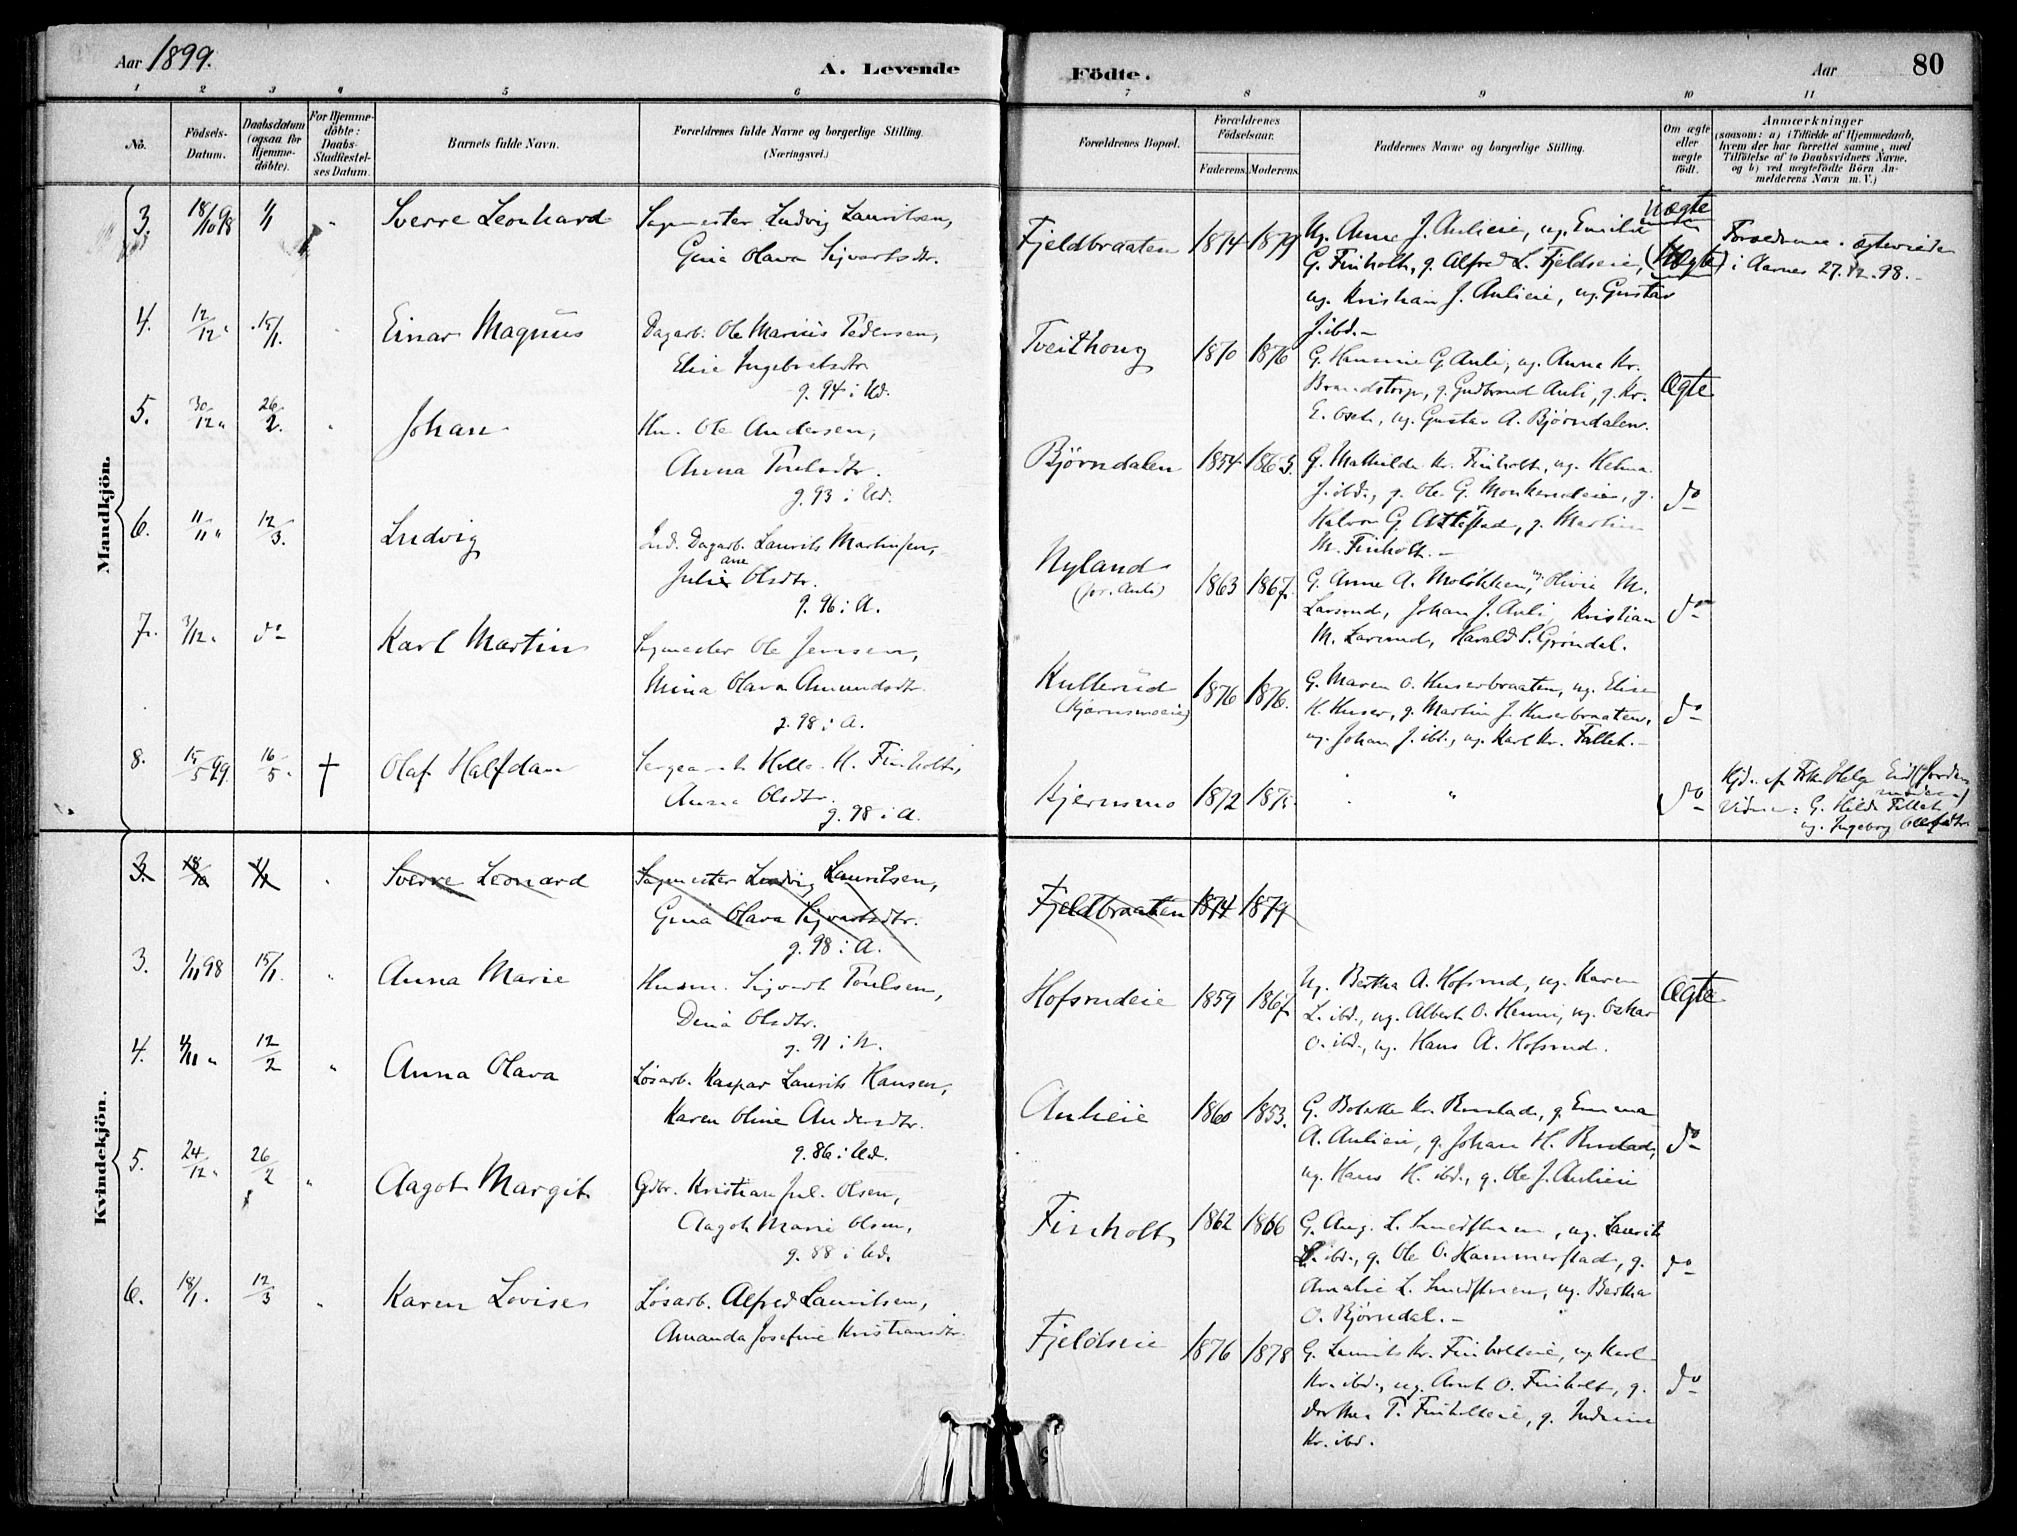 Aar 1899.
A. Levende
Födte.
Aar
80
1 2 3 4 5 6 7 8 9 10 11
No.
Födsels-Datum.
Daabsdatum (ogsaa for Hjemme-döbte).
For Hjemme-döbte: Daabs-Stadfæstel-ses Datum.
Barnets fulde Navn.
Forældrenes fulde Navne og borgerlige Stilling.
(Næringsvei.)
Forældrenes Bopæl.
Forældrenes Födselsaar.
Faderens. Moderens.
Faddernes Navne og borgerlige Stilling.
Om ægte eller uægte födt.
Anmærkninger
(saasom: a) i Tilfælde af Hjemmedaab,
hvem der har forrettet samme, med
Tilföielse af to Daabsvidners Navne,
og b) ved uægtefödte Börn An-
melderens Navn m. V.)
Mandkjön.
3. 18/10 98 1/1 " Sverre Leonhard Sagmester Ludvig Lauritsen,
Gina Olava Sigvartsdtr.
Fjeldbraaten 1874 1879 Ug. Anne J. Aulieie, ug. Emilie
G. Finholt, g. Alfred L. Fjeldseie,
ug. Kristian J. Aulieie, ug. Gustav
J. ibd. -
Uægte
(Uægte)
Forældrene ægteviede
i Aarnes 27.12.98. -
4. 12/12 " 15/1. " Einar Magnus Dagarb. Ole Marius Pedersen,
Elise Ingebretsdtr.
g. 94 i Ud.
Tveithoug 1870 1876 G. Hansine G. Auli, ug. Anna Kr.
Brandstorp, g. Gudbrand Auli, g. Kr.
E. , ug. Gustav A. Bjørndalen.
Ægte
5. 30/12 " 26/2. " Johan Hm. Ole Andersen,
Anna Poulsdtr.
g. 93 i Ud.
Bjørndalen 1854 1865. G. Mathilde Kr. Finholt, ug. Helma
J. ibd., g. Ole G. , g.
Halvor G. , g. Martin
M. Finholt. -
do
6. 11/11 " 12/3. Ludvig Ind. Dagarb. Laurits Martinsen,
Juliane Olsdtr.
g. 96 i A.
Nyland
(for. Auli)
1863 1867. G. Anne A. Moløkken, ug. Olivia M.
Larsrud, Johan J. Auli, Kristian
M. Larsrud, Harald P. Grøndal.
do
7. 3/12 " do Karl Martin Sagmester Ole Jensen,
Mina Olava Amundsdtr.
g. 98 i A.
Kullerud
(Kjørnsmoeie)
1876 1876. G. Maren O. Huserbraaten, ug. Elise
K. Huser, g. Martin J. Huserbraaten,
ug. Johan J. ibd., ug. Karl Kr. Fallet. -
do
8. 15/5 99 16/5. † Olaf Halfdan Sergeant Helle H. Finholt,
Anna Olsdtr.
g. 98 i A.
Kjernsmo 1872 1875. " " do
Hjd. af Frk. Helga Eid (Jorde-
moder)
Vidner: G. Hilda Fallet,
ug. Ingeborg
Kvindekjön.
3. 18/10 1/1 " Sverre Leonard Sagmester Ludvig Lauritsen,
Gina Olava Sigvartsdtr.
g. 98 i A.
Fjeldbraaten 1874 1879
3. 1/11 98 15/1. " Anna Marie Husm. Sigvart Poulsen,
Dina Olsdtr.
g. 91 i N.
Hofsrudeie 1859 1867 Ug. Bertha A. Hofsrud, ug. Karen
L. ibd., ug. Albert O. Henni, ug. Oskar
O. ibd., ug. Hans A. Hofsrud.
Ægte
4. 4/11 " 12/2 " Anna Olava Løsarb. Kaspar Laurits Hansen,
Karen Oline Andersdtr.
g. 86 i Ud.
Aulieie 1860 1853. G. Bolette Kr. Rustad, g. Emma
A. Aulieie, g. Johan H. Rustad,
ug. Hans H. ibd., g. Ole J. Aulieie
do
5. 24/12 " 26/2 " Aagot Margit Gdbr. Kristian Jul. Olsen,
Aagot Marie Olsen,
g. 88 i Ud.
Finholt 1862 1866 G. Aug. L. Smedstuen, ug. Laurits
L. ibd., g. Ole O. Hammerstad, g.
Amalie L. Smedstuen, ug. Bertha
O. Bjørndal. -
do
6. 18/1. 12/3 " Karen Lovise Løsarb. Alfred Lauritsen,
Amanda Josefine Kristiansdtr.
Fjeldseie 1876 1878 G. Laurits Kr. Finholteie, ug. Karl
Kr. ibd., ug. Arnt O. Finholt, g.
Dorthea P. Finholteie, g. Indiane
Kr. ibd.
do